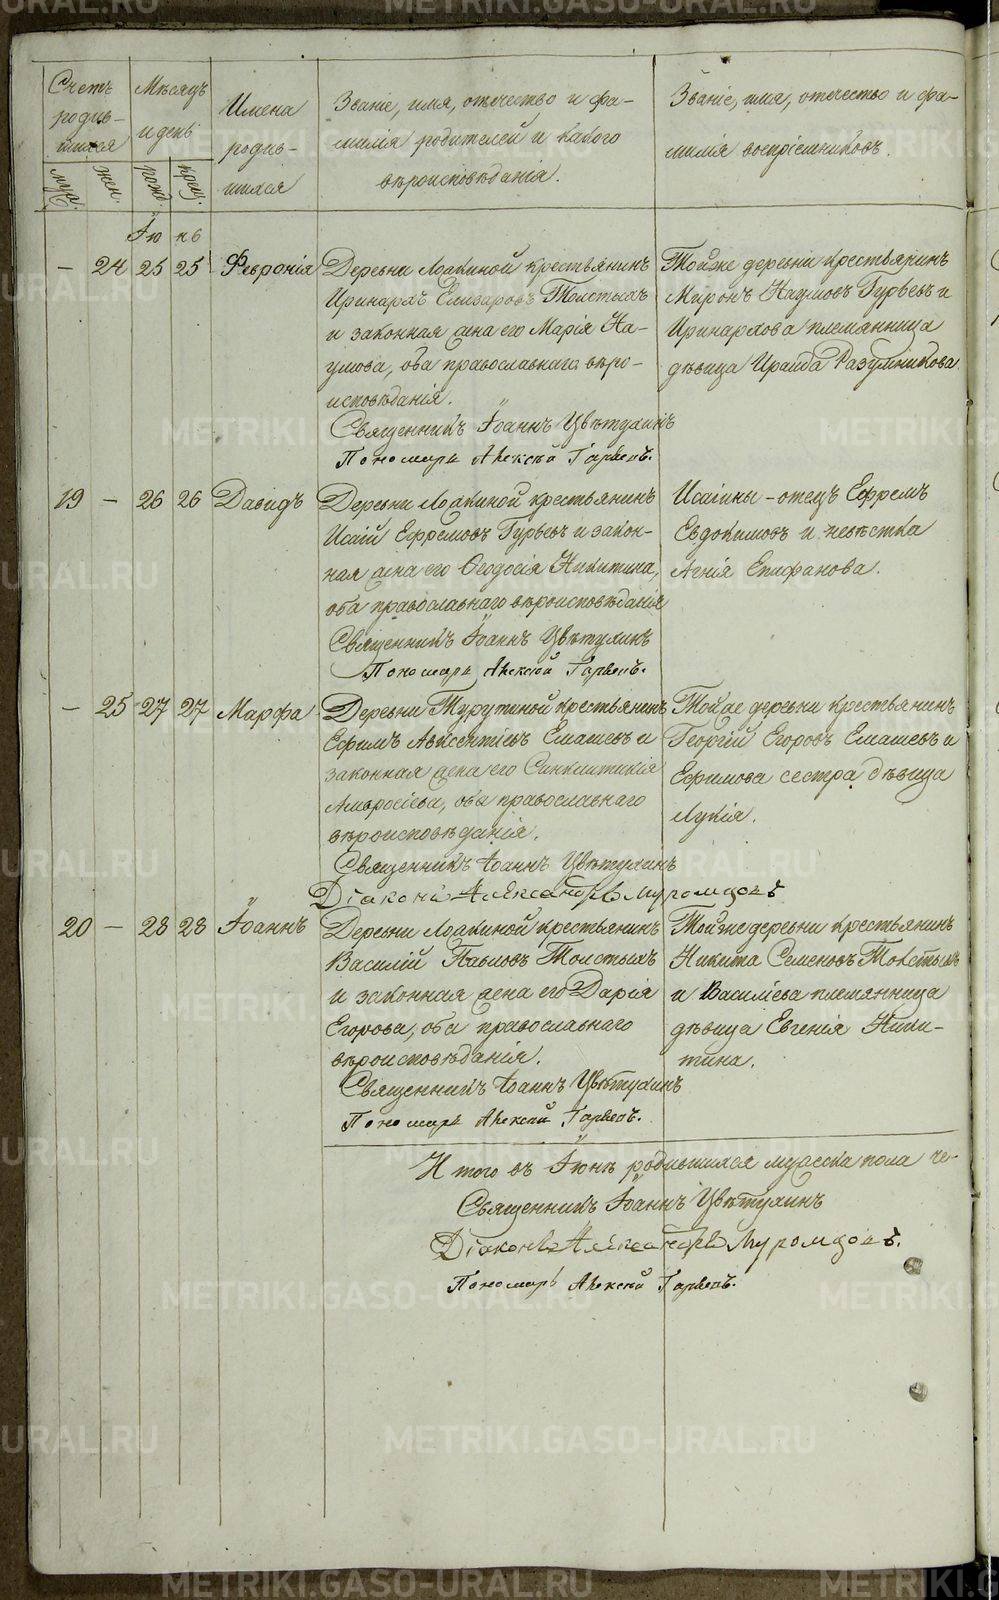 Счетъ родив-
шихся
муж. жен.
Мѣсяцъ
и день
рожд. крещ.
Имена
родив-
шихся
Званіе, имя, отчество и фа-
милія родителей и какого
вѣроисповѣданія.
Званіе, имя, отчество и фа-
милія воспріемниковъ.
Іюнь
— 24 25 25 Февронія
Деревни Лоакиной крестьянинъ
Иринархъ Елизаровъ Толстыхъ
и законная жена его Марія На-
умова, оба православнаго вѣро-
исповѣданія.
Священникъ Іоаннъ Цвѣтухинъ
Пономарь Алексѣй
Тойже деревни крестьянинъ
Миронъ Наумовъ Гурьевъ и
Иринархова племянница
дѣвица Ираида Разумникова.
19 — 26 26 Давидъ
Деревни Лоакиной крестьянинъ
Исаій Ефремовъ Гурьевъ и закон-
ная жена его Ѳеодосія Никитина,
оба православнаго вѣроисповѣданія
Священникъ Іоаннъ Цвѣтухинъ
Пономарь Алексѣй
Исаіины - отецъ Ефремъ
Евдокимовъ и невѣстка
Агнія Епифанова.
— 25 27 27 Марфа
Деревни Турутиной крестьянинъ
Ефимъ Авксентіевъ Емашевъ и
законная жена его Синклитикія
Амвросіева, оба православнаго
вѣроисповѣданія.
Священникъ Іоаннъ Цвѣтухинъ
Діаконъ Александръ Муромцовъ
Тойже деревни крестьянинъ
Георгій Егоровъ Емашевъ и
Ефимова сестра дѣвица
Лукія.
20 — 28 28 Іоаннъ
Деревни Лоакиной крестьянинъ
Василій Павловъ Толстыхъ
и законная жена его Дарія
Егорова, оба православнаго
вѣроисповѣданія.
Священникъ Іоаннъ Цвѣтухинъ
Пономарь Алексѣй
Тойже деревни крестьянинъ
Никита Семеновъ Толстыхъ
и Василіева племянница
дѣвица Евгенія Ники-
тина.
Итого въ Іюнѣ родившихся мужеска пола че-
Священникъ Іоаннъ Цвѣтухинъ
Діаконъ Александръ Муромцовъ.
Пономарь Алексѣй
METRIKI.GASO-URAL.RU